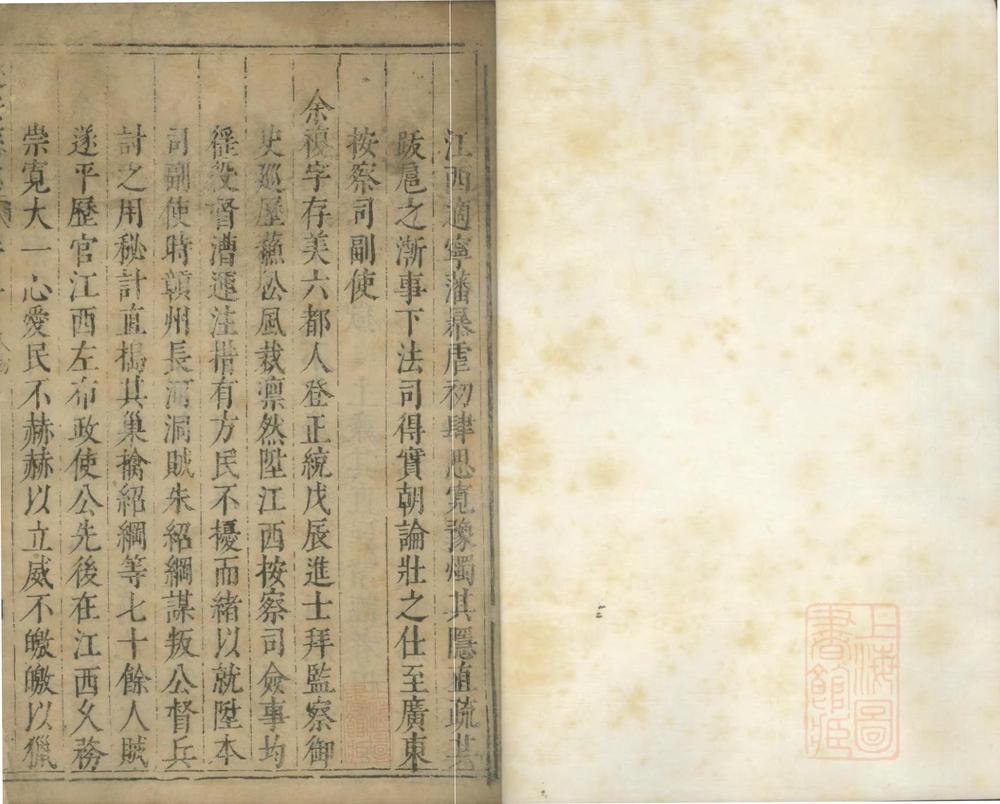 江西適寧藩暴虐初肆思寬豫燭其隱直疏其
跋扈之漸事下法司得實朝論壯之仕至廣東
按察司副使
余複字存美六都人登正統戊辰進士拜監察御
史巡歷蘇松風裁凛然陞江西按察司僉事均
徭役督漕運注措有方民不擾而緒以就陞本
司副使時贛州長河洞賊朱紹綱謀叛公督兵
討之用秘計直搗其巢擒紹綱等七十餘人賊
遂平歷官江西左布政使公先後在江西久務
崇寬大一心愛民不赫赫以立威不皦皦以獵
上海圖
書館藏